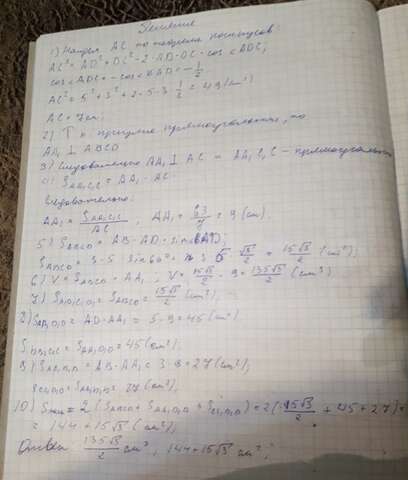 Решение
1) Найдем AC по теореме косинусов:
AC² = AD² + DC² - 2·AD·DC·cos<ADC;
cos<ADC = -cos<BAD = -1/2
AC² = 5² + 3² + 2·5·3·1/2 = 49 (см²)
AC = 7 см;
2) Т.к. прямоугольный, то
AA₁ ⊥ ABCD
3) Следовательно AA₁ ⊥ AC = AA₁C₁C - прямоугольник
4) S_AA₁C₁C = AA₁·AC
Следовательно:
AA₁ = S_AA₁C₁C/AC, AA₁ = 63/7 = 9 (см)
5) S_ABCD = AB·AD·sin(BAD);
S_ABCD = 3·5 sin60 = 3·5 √3/2 = 15√3/2 (см²);
6) V = S_ABCD·AA₁; V = 15√3/2·9 = 135√3/2 (см³)
7) S_A₁B₁C₁D₁ = S_ABCD = 15√3/2 (см²);
8) S_AA₁D₁D = AD·AA₁ = 5·9 = 45 (см²)
S_BB₁C₁C = S_AA₁D₁D = 45 (см²);
9) = AB·AA₁ = 3·9 = 27 (см²);
= 27 (см²);
10) = 2(15√3/2 + 45 + 27) =
= 144 + 15√3 (см²);
Ответ 135√3/2 см³, 144 + 15√3 см²;